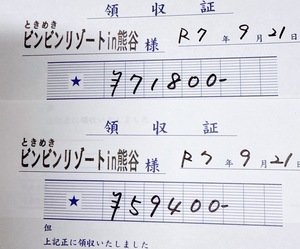 領収証
ときめき
ピンピンリゾートin熊谷 様 R7年9月21日
★ ¥71800-
領収証
ときめき
ピンピンリゾートin熊谷 様 R7年9月21日
★ ¥59400-
但
上記正に領収いたしました